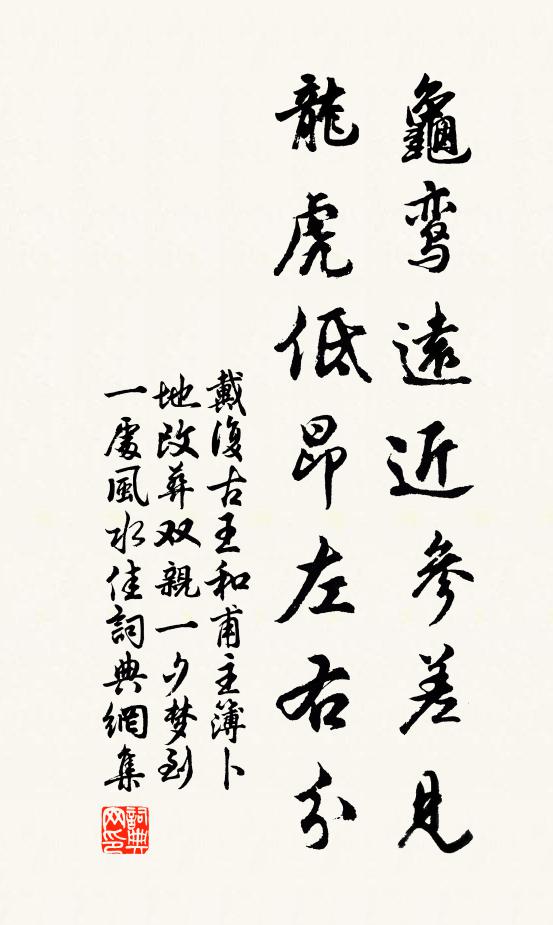 龜鸾遠近參差見
龍虎低昂左右分
戴復古王和甫主簿卜
地改葬双親一夕梦到
一處風水佳詞典網集
詞典
网印